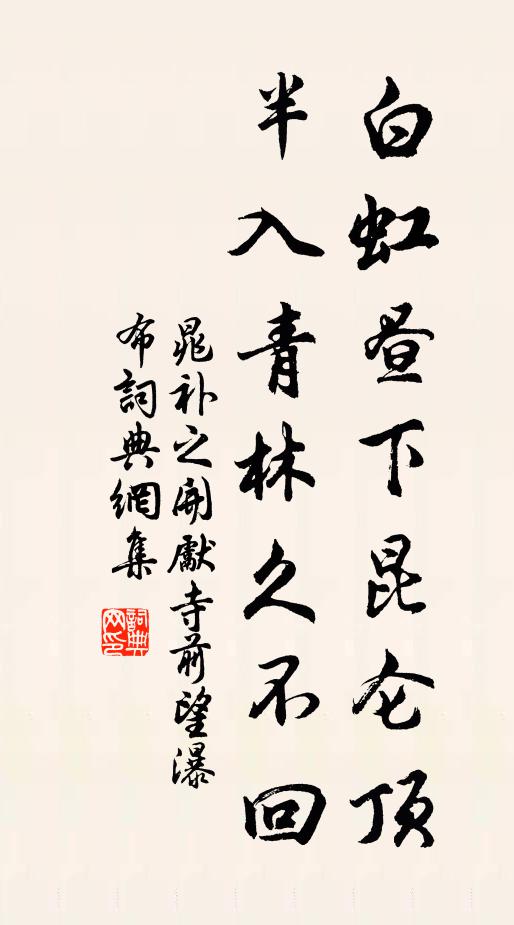 白虹昼下昆仑顶
半入青林久不回
晁补之開獻寺前望瀑
布詞典網集
詞典